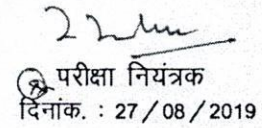 परीक्षा नियंत्रक
दिनांक. : 27/08/2019